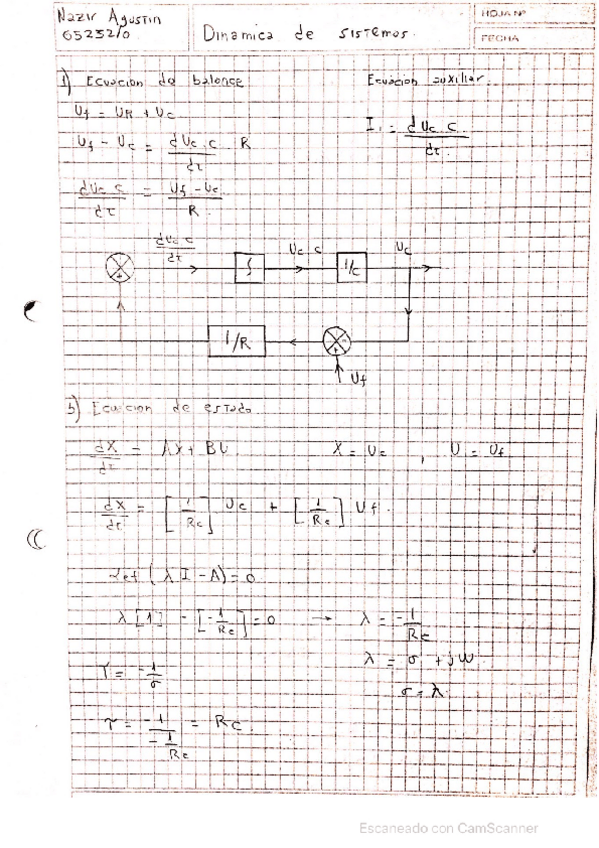 Nazir Agustin
65252/0
Dinamica de sistemas.
HOJA Nº
FECHA
1) Ecuacion de balance
Ecuacion auxiliar.
Uf = UR + Uc
I. = dUc.c / dτ
Uf - Uc = dUc.c / dτ . R
dUc.c / dτ = Uf - Uc / R
dUc.c / dτ
∫
Uc.c
1/c
Uc
1/R
Uf
b) Ecuacion de estado
dX / dτ = AX + BU
X = Uc , U = Uf
dX / dτ = [1 / Rc] Uc + [1 / Rc] Uf.
det (λI - A) = 0
λ[1] - [-1 / Rc] = 0 → λ = -1 / Rc
λ = σ + jW
σ = λ
τ = -1 / σ
τ = -1 / -1/Rc = Rc.
Escaneado con CamScanner